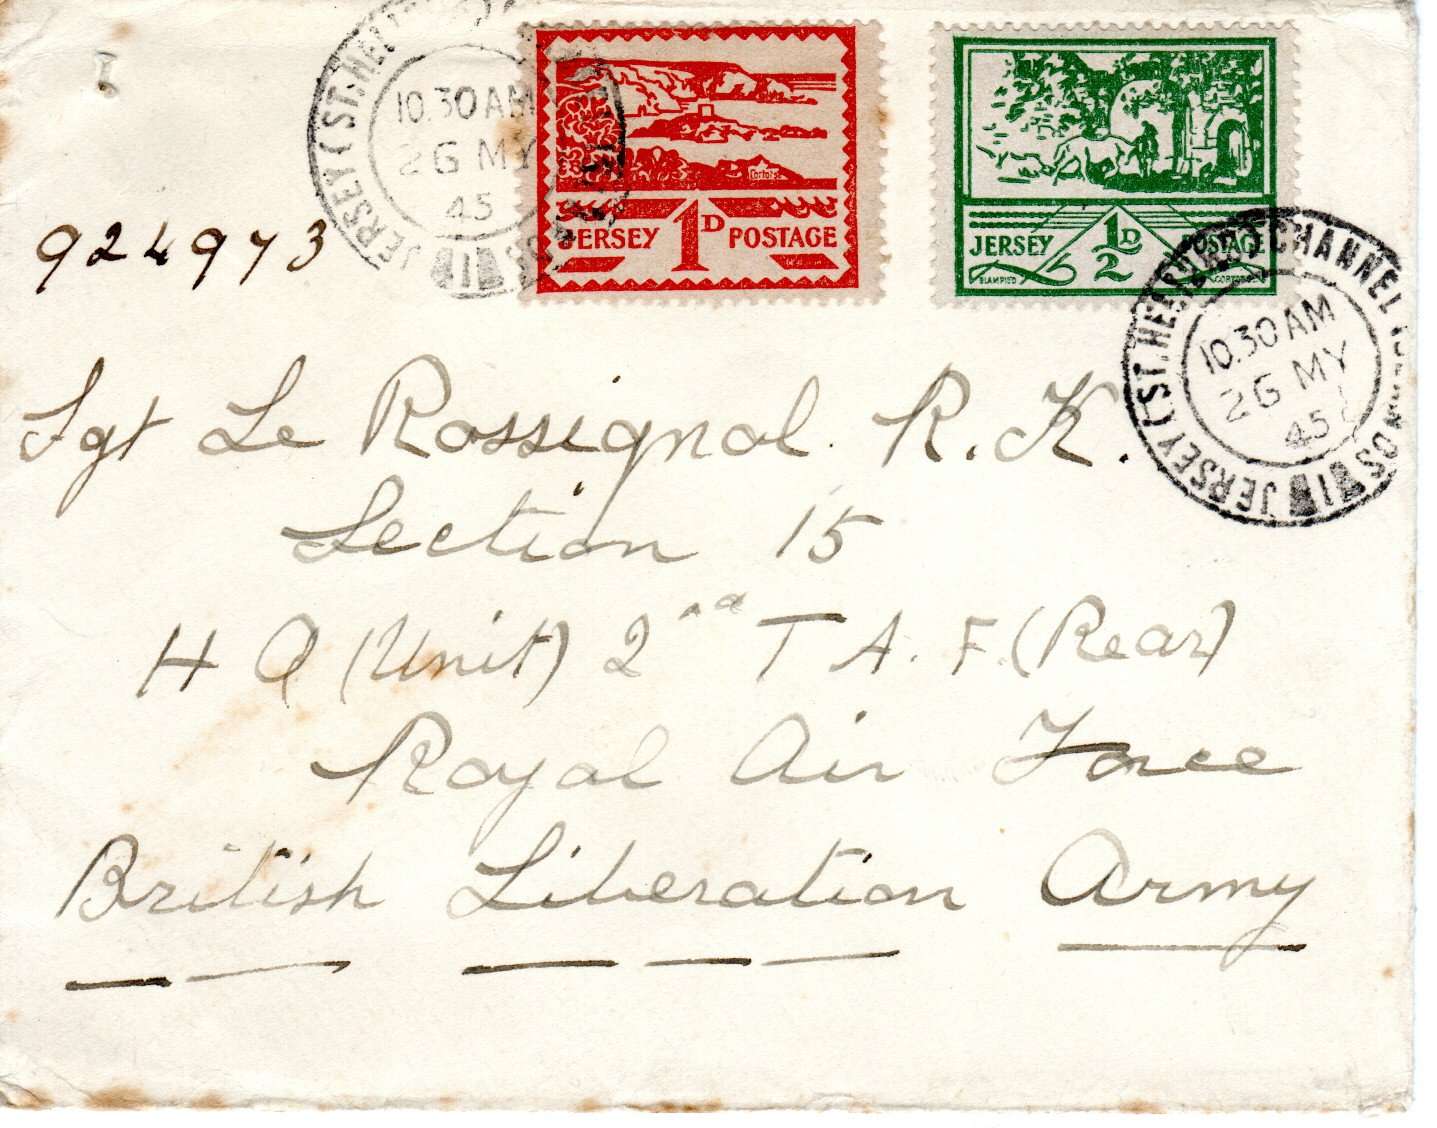 JERSEY (ST. HEL
10.30 AM
26 MY
45
11
JERSEY 1D POSTAGE
JERSEY ½D POSTAGE
BLAMPIED
JERSEY (ST. HELIER) CHANNEL
10.30 AM
26 MY
45
11
JERSEY
924973
Sgt Le Rossignol. R. K.
Section 15
H Q (Unit) 2nd T A. F. (Rear)
Royal Air Force
British Liberation Army